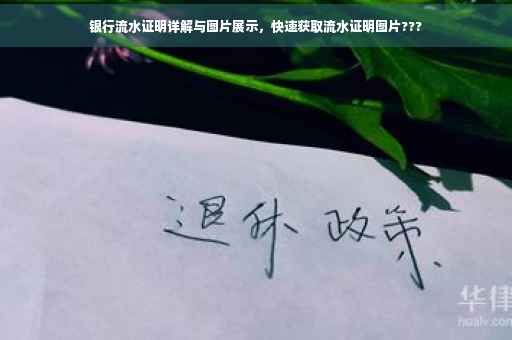 银行流水证明详解与图片展示，快速获取流水证明图片???
退休 政策
华律
hualv.com